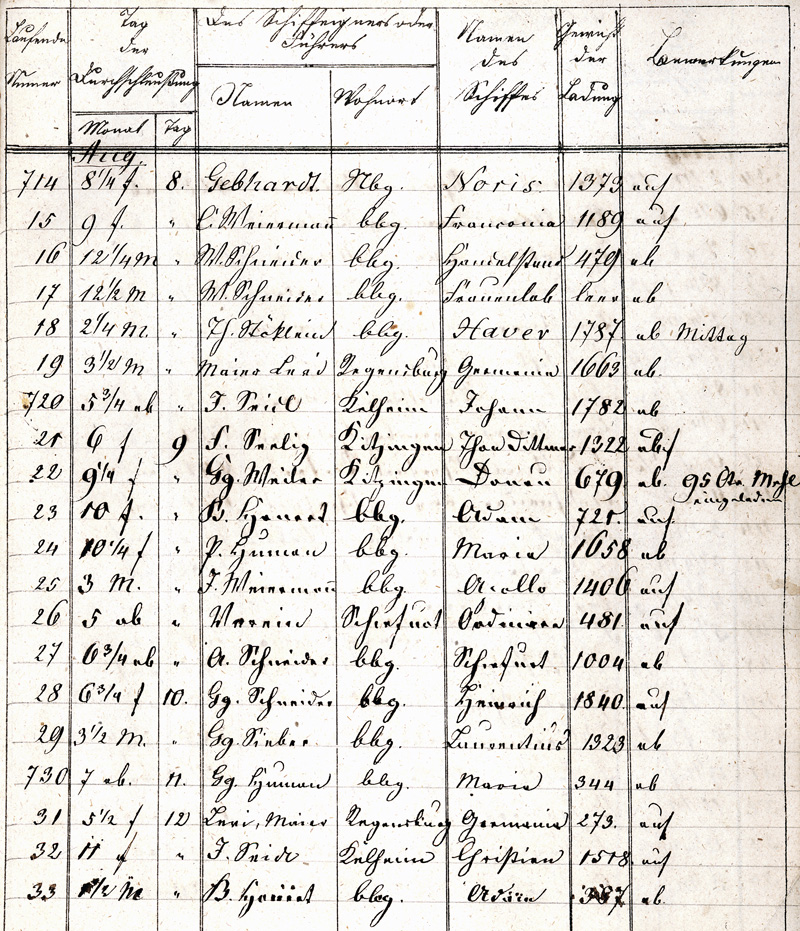 Laufende Numer
Tag der Durchschleußung
Des Schiffeigners oder Führers
Namen des Schiffes
Gewicht der Ladung
Bemerkungen
Monat Tag Namen Wohnort
Aug
714 8 1/4 f. 8. Gebhardt. Nbg. Noris 1373 auf
15 9 f. " C. Weiermann bbg. Franconia 1189 auf
16 12 1/4 M " W. Schneider bbg. 479 ab
17 12 1/2 M " W. Schneider bbg. Frauenlob leer ab
18 2 1/4 M. " Th. Stöklein bbg. Haver 1787 ab Mittag
19 3 1/2 M " Maier Regensburg Germania 1663 ab.
720 5 3/4 ab " J. Seidl Kelheim Johann 1782 ab
21 6 f 9 S. Seelig Kitzingen Thon Dittmer 1322
22 9 1/4 f " Gg. Weiler Kitzingen Donau 679. ab. 95 Ctr. Mehl
eingeladen
23 10 f. " B. bbg. Adam 721. auf.
24 10 1/4 f " P. Human bbg. Maria 1658 ab
25 3 M. " J. Weiermann bbg. Apollo 1406 auf
26 5 ab " Verein Schweinfurt 481 auf
27 6 3/4 ab " A. Schneider bbg. Schweinfurt 1004 ab
28 6 3/4 f 10. Gg. Schneider bbg. Heinrich 1840 auf
29 3 1/2 M. " Gg. Sieber bbg. Laurentius 1323 ab
730 7 ab. 11. Gg. Human bbg. Maria 344 ab
31 5 1/2 f 12 Levi, Maier Regensburg Germania 273. auf
32 11 f " J. Seidl Kelheim Christian 1518. auf
33 1 1/2 M " B. bbg. Adam ab.